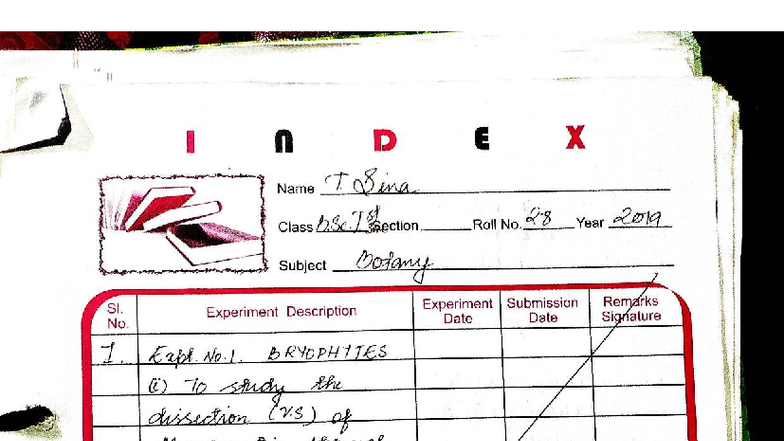 INDEX
Name T. Sina
Class BSc. Ist Section Roll No. 28 Year 2019
Subject Botany
Sl. No. Experiment Description Experiment Date Submission Date Remarks Signature
1. Expt. No.1. BRYOPHYTES
(i) To study the
dissection (V.S) of